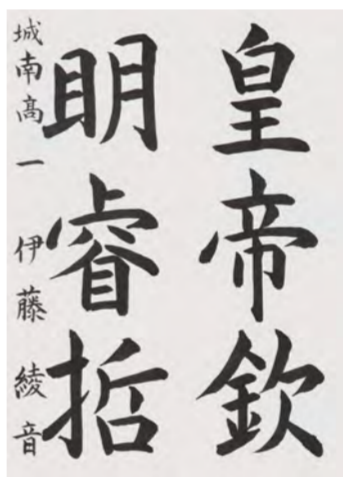 皇帝欽
明睿哲
城南髙一 伊藤綾音